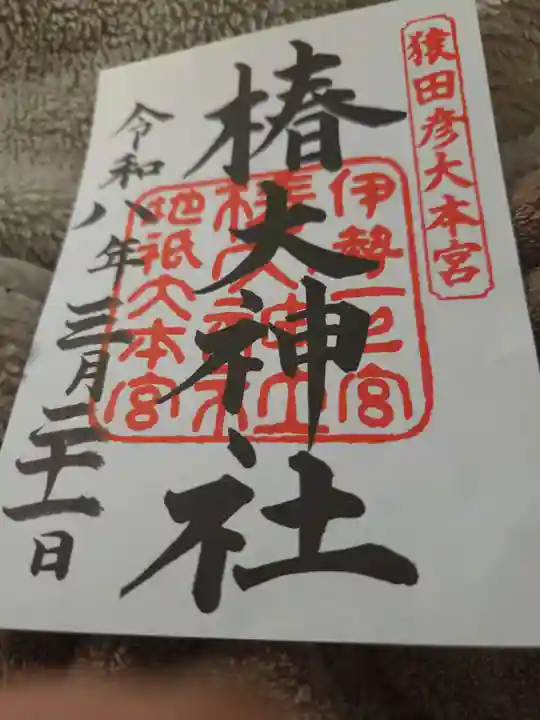 猿田彦大本宮
椿大神社
伊勢一之宮
椿大神社
地祇大本宮
令和八年三月二十一日